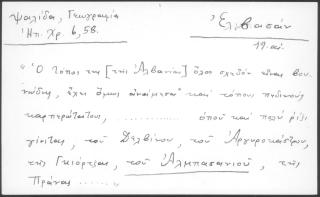 Ψαλίδα, Γεωγραφία
Ἠπ. Χρ. 6, 58.
Ἐλβασάν
19. αἰ.
"Ὁ τόπος της [τῆς Ἀλβανίας] ὅλος σχεδὸν εἶναι βου-
νώδης, ἔχει ὅμως ἀνάμεσα καὶ τόπους πεδινοὺς
καρπερωτάτους, .......... ὁποῦ καὶ πολὺ ρίζι
γίνεται, τοῦ Δελβίνου, τοῦ Ἀργυροκάστρου,
τῆς Γκιόρτζας, τοῦ Ἀλμπασανιοῦ, τῆς
Πρένας .......... "